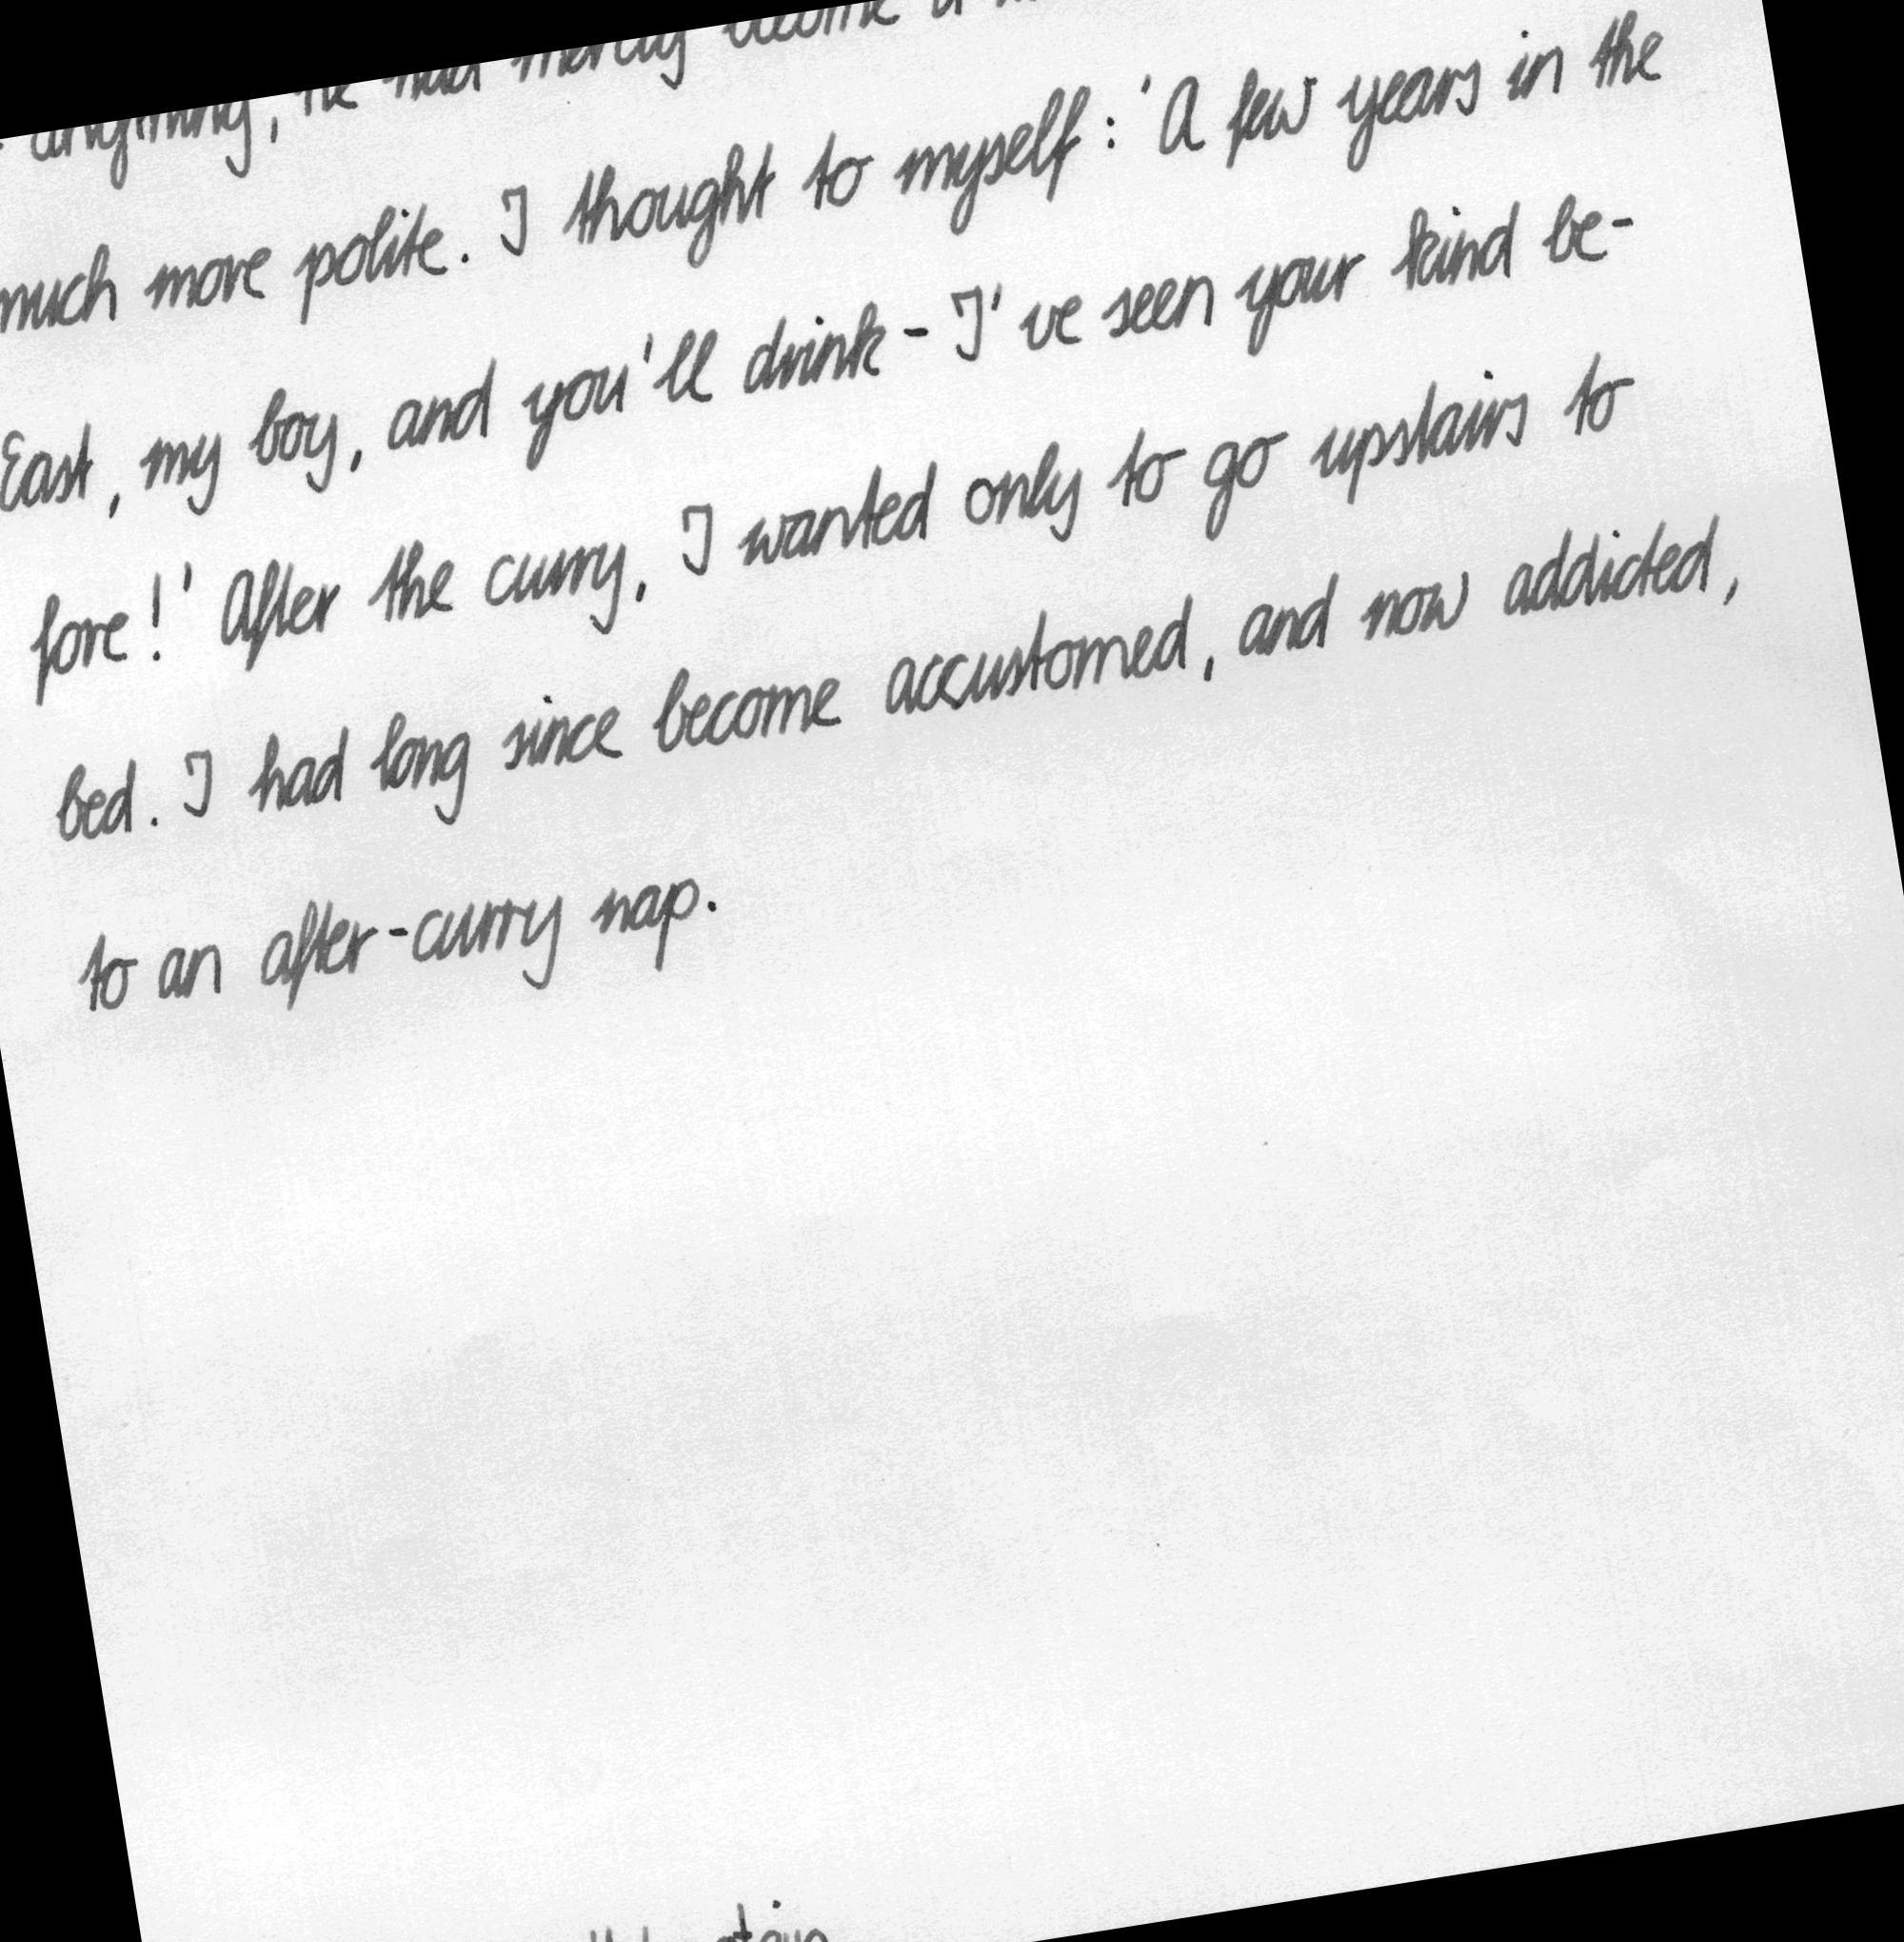 anything, he had merely become a
much more polite. I thought to myself: 'A few years in the
East, my boy, and you'll drink - I've seen your kind be-
fore!' After the curry, I wanted only to go upstairs to
bed. I had long since become accustomed, and now addicted,
to an after-curry nap.